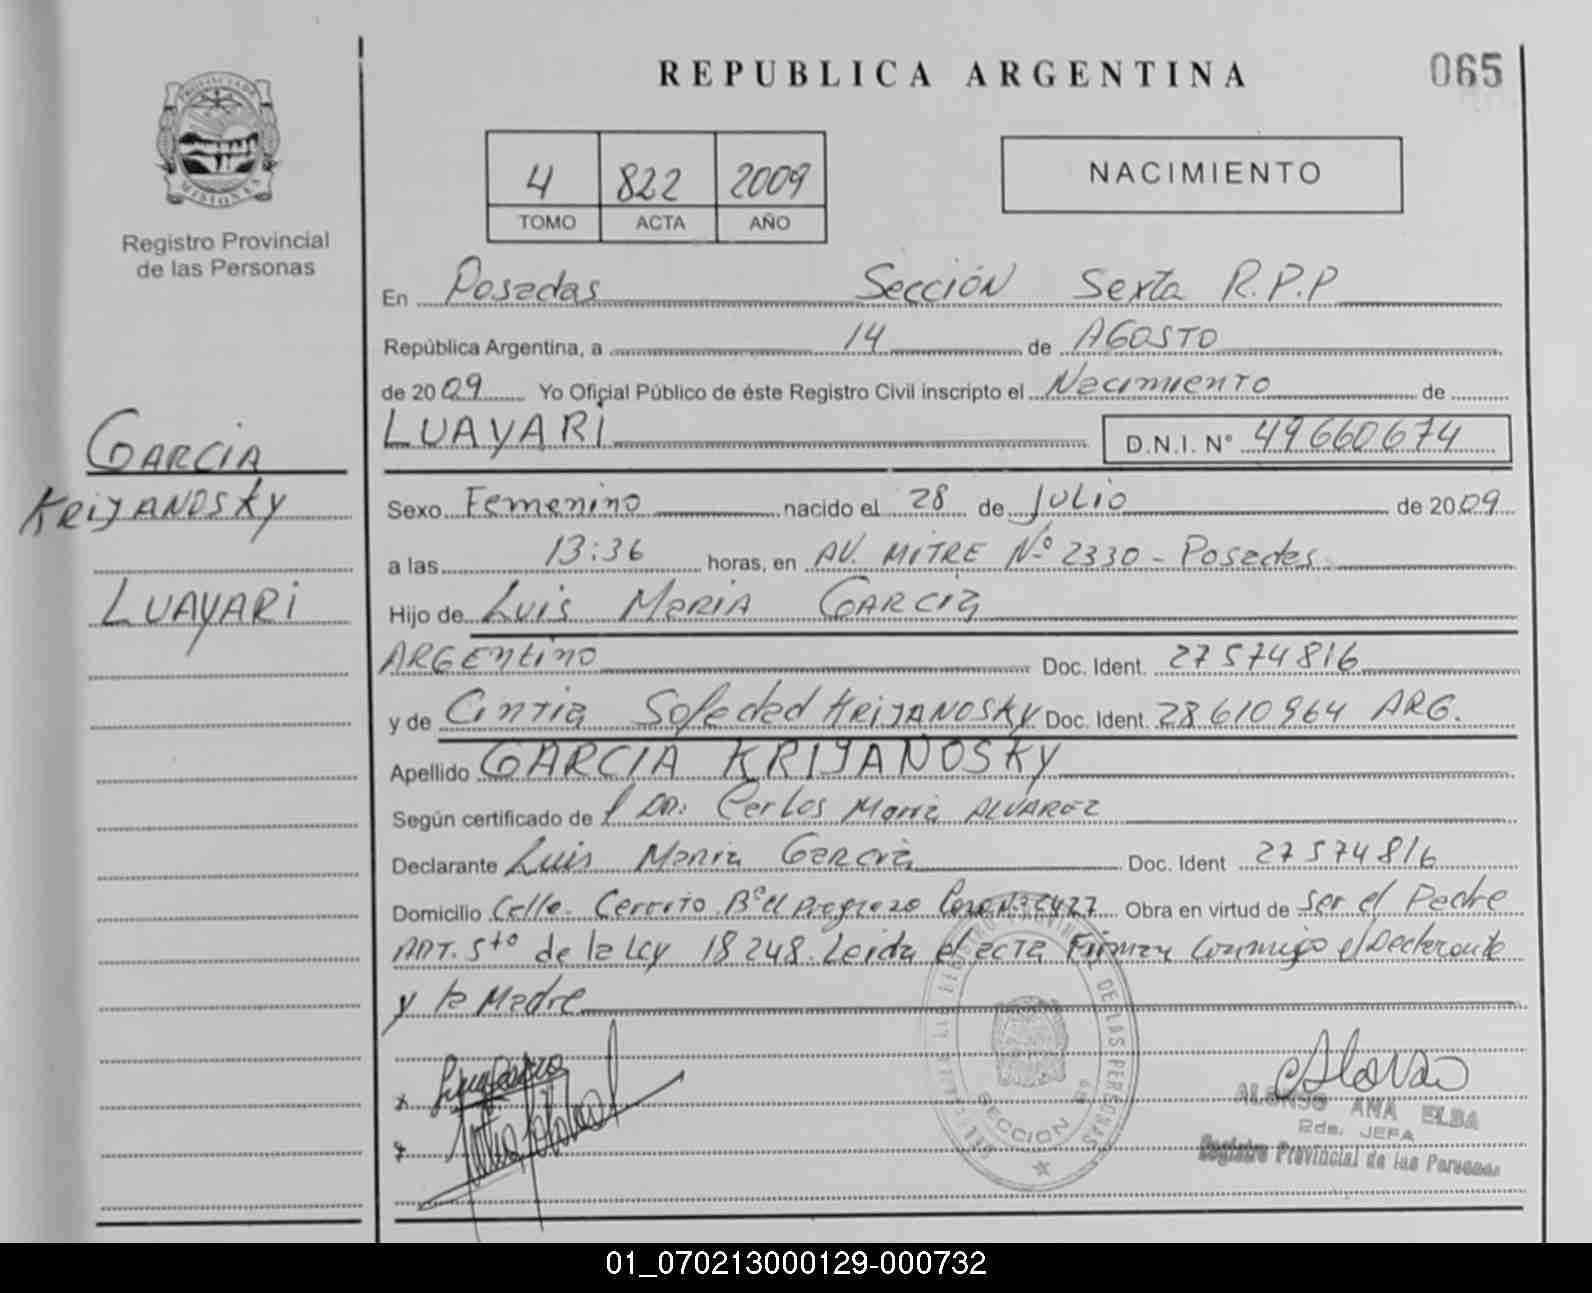 REPUBLICA ARGENTINA
065
PROVINCIA DE MISIONES
Registro Provincial
de las Personas
4 822 2009
TOMO ACTA AÑO
NACIMIENTO
En Posadas Sección Sexta R.P.P
República Argentina, a 14 de AGOSTO
de 2009 Yo Oficial Público de éste Registro Civil inscripto el Nacimiento de
LUAYARI D.N.I. N° 49660674
GARCIA
KRIJANOSKY
LUAYARI
Sexo Femenino nacido el 28 de JULIO de 2009
a las 13:36 horas, en AV. MITRE Nº 2330 - Posadas
Hijo de Luis MARIA GARCIA
ARGENTINO Doc. Ident. 27574816
y de Cintia Soledad KRIJANOSKY Doc. Ident. 28610964 ARG.
Apellido GARCIA KRIJANOSKY
Según certificado de DR: Carlos Maria ALVAREZ
Declarante Luis Maria Garcia Doc. Ident 27574816
Domicilio Calle Cerrito Bº El Progreso Casa Obra en virtud de ser el Padre
ART. 5to de la Ley 18248. Leida el acta Firman Conmigo el Declarante
y la Madre
REGISTRO PROVINCIAL DE LAS PERSONAS
SECCION 6a
ALONSO ANA ELBA
2da. JEFA
Registro Provincial de las Personas
01_070213000129-000732